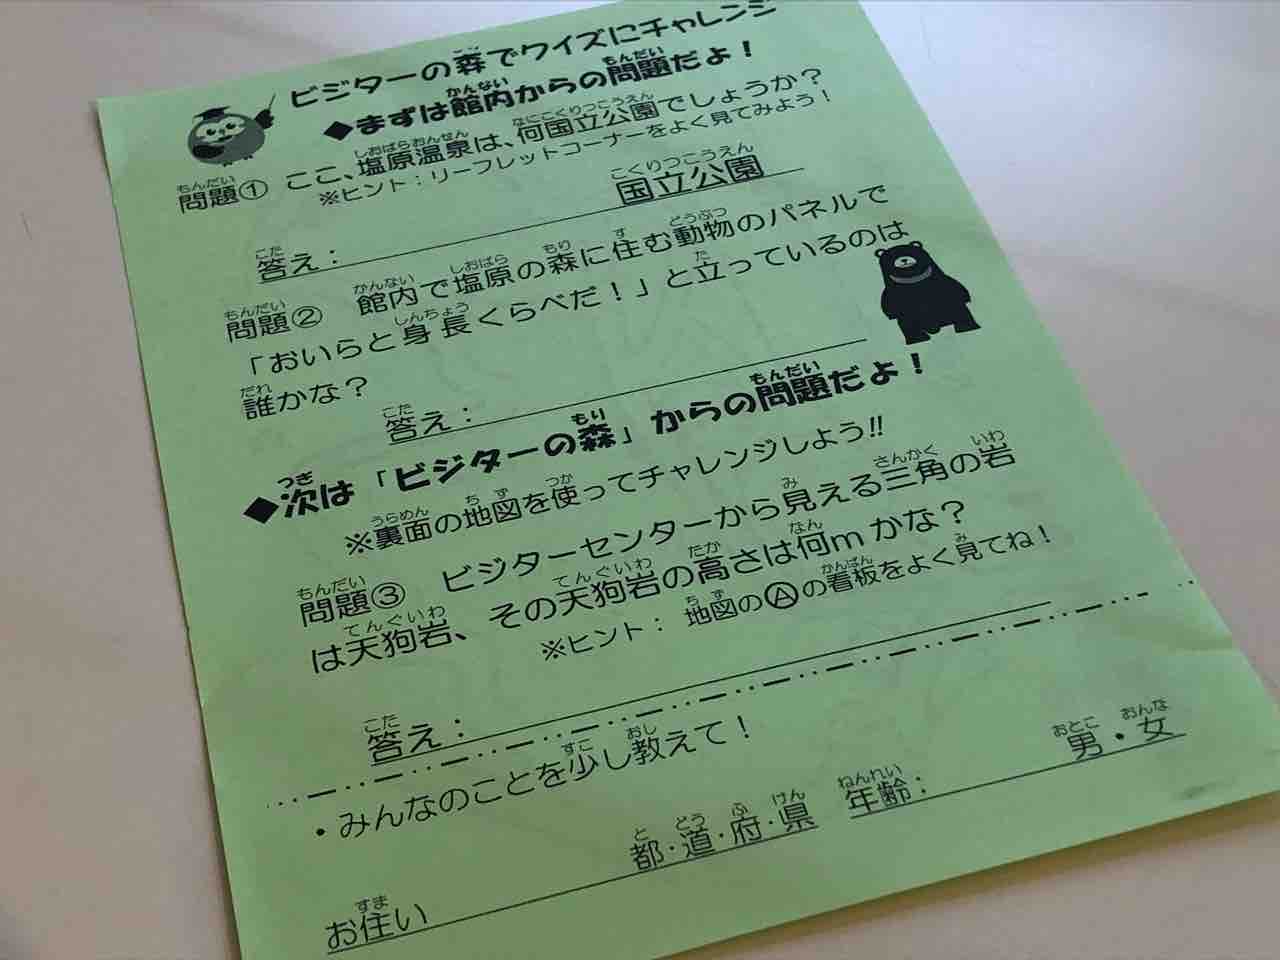 ビジターの森でクイズにチャレンジ
◆まずは館内からの問題だよ！
問題① ここ、塩原温泉は、何国立公園でしょうか？
※ヒント：リーフレットコーナーをよく見てみよう！
答え： 国立公園
問題② 館内で塩原の森に住む動物のパネルで
「おいらと身長くらべだ！」と立っているのは
誰かな？
答え：
◆次は「ビジターの森」からの問題だよ！
※裏面の地図を使ってチャレンジしよう!!
問題③ ビジターセンターから見える三角の岩
は天狗岩、その天狗岩の高さは何mかな？
※ヒント： 地図のⒶの看板をよく見てね！
答え：
・みんなのことを少し教えて！
お住い 都・道・府・県 年齢： 男・女